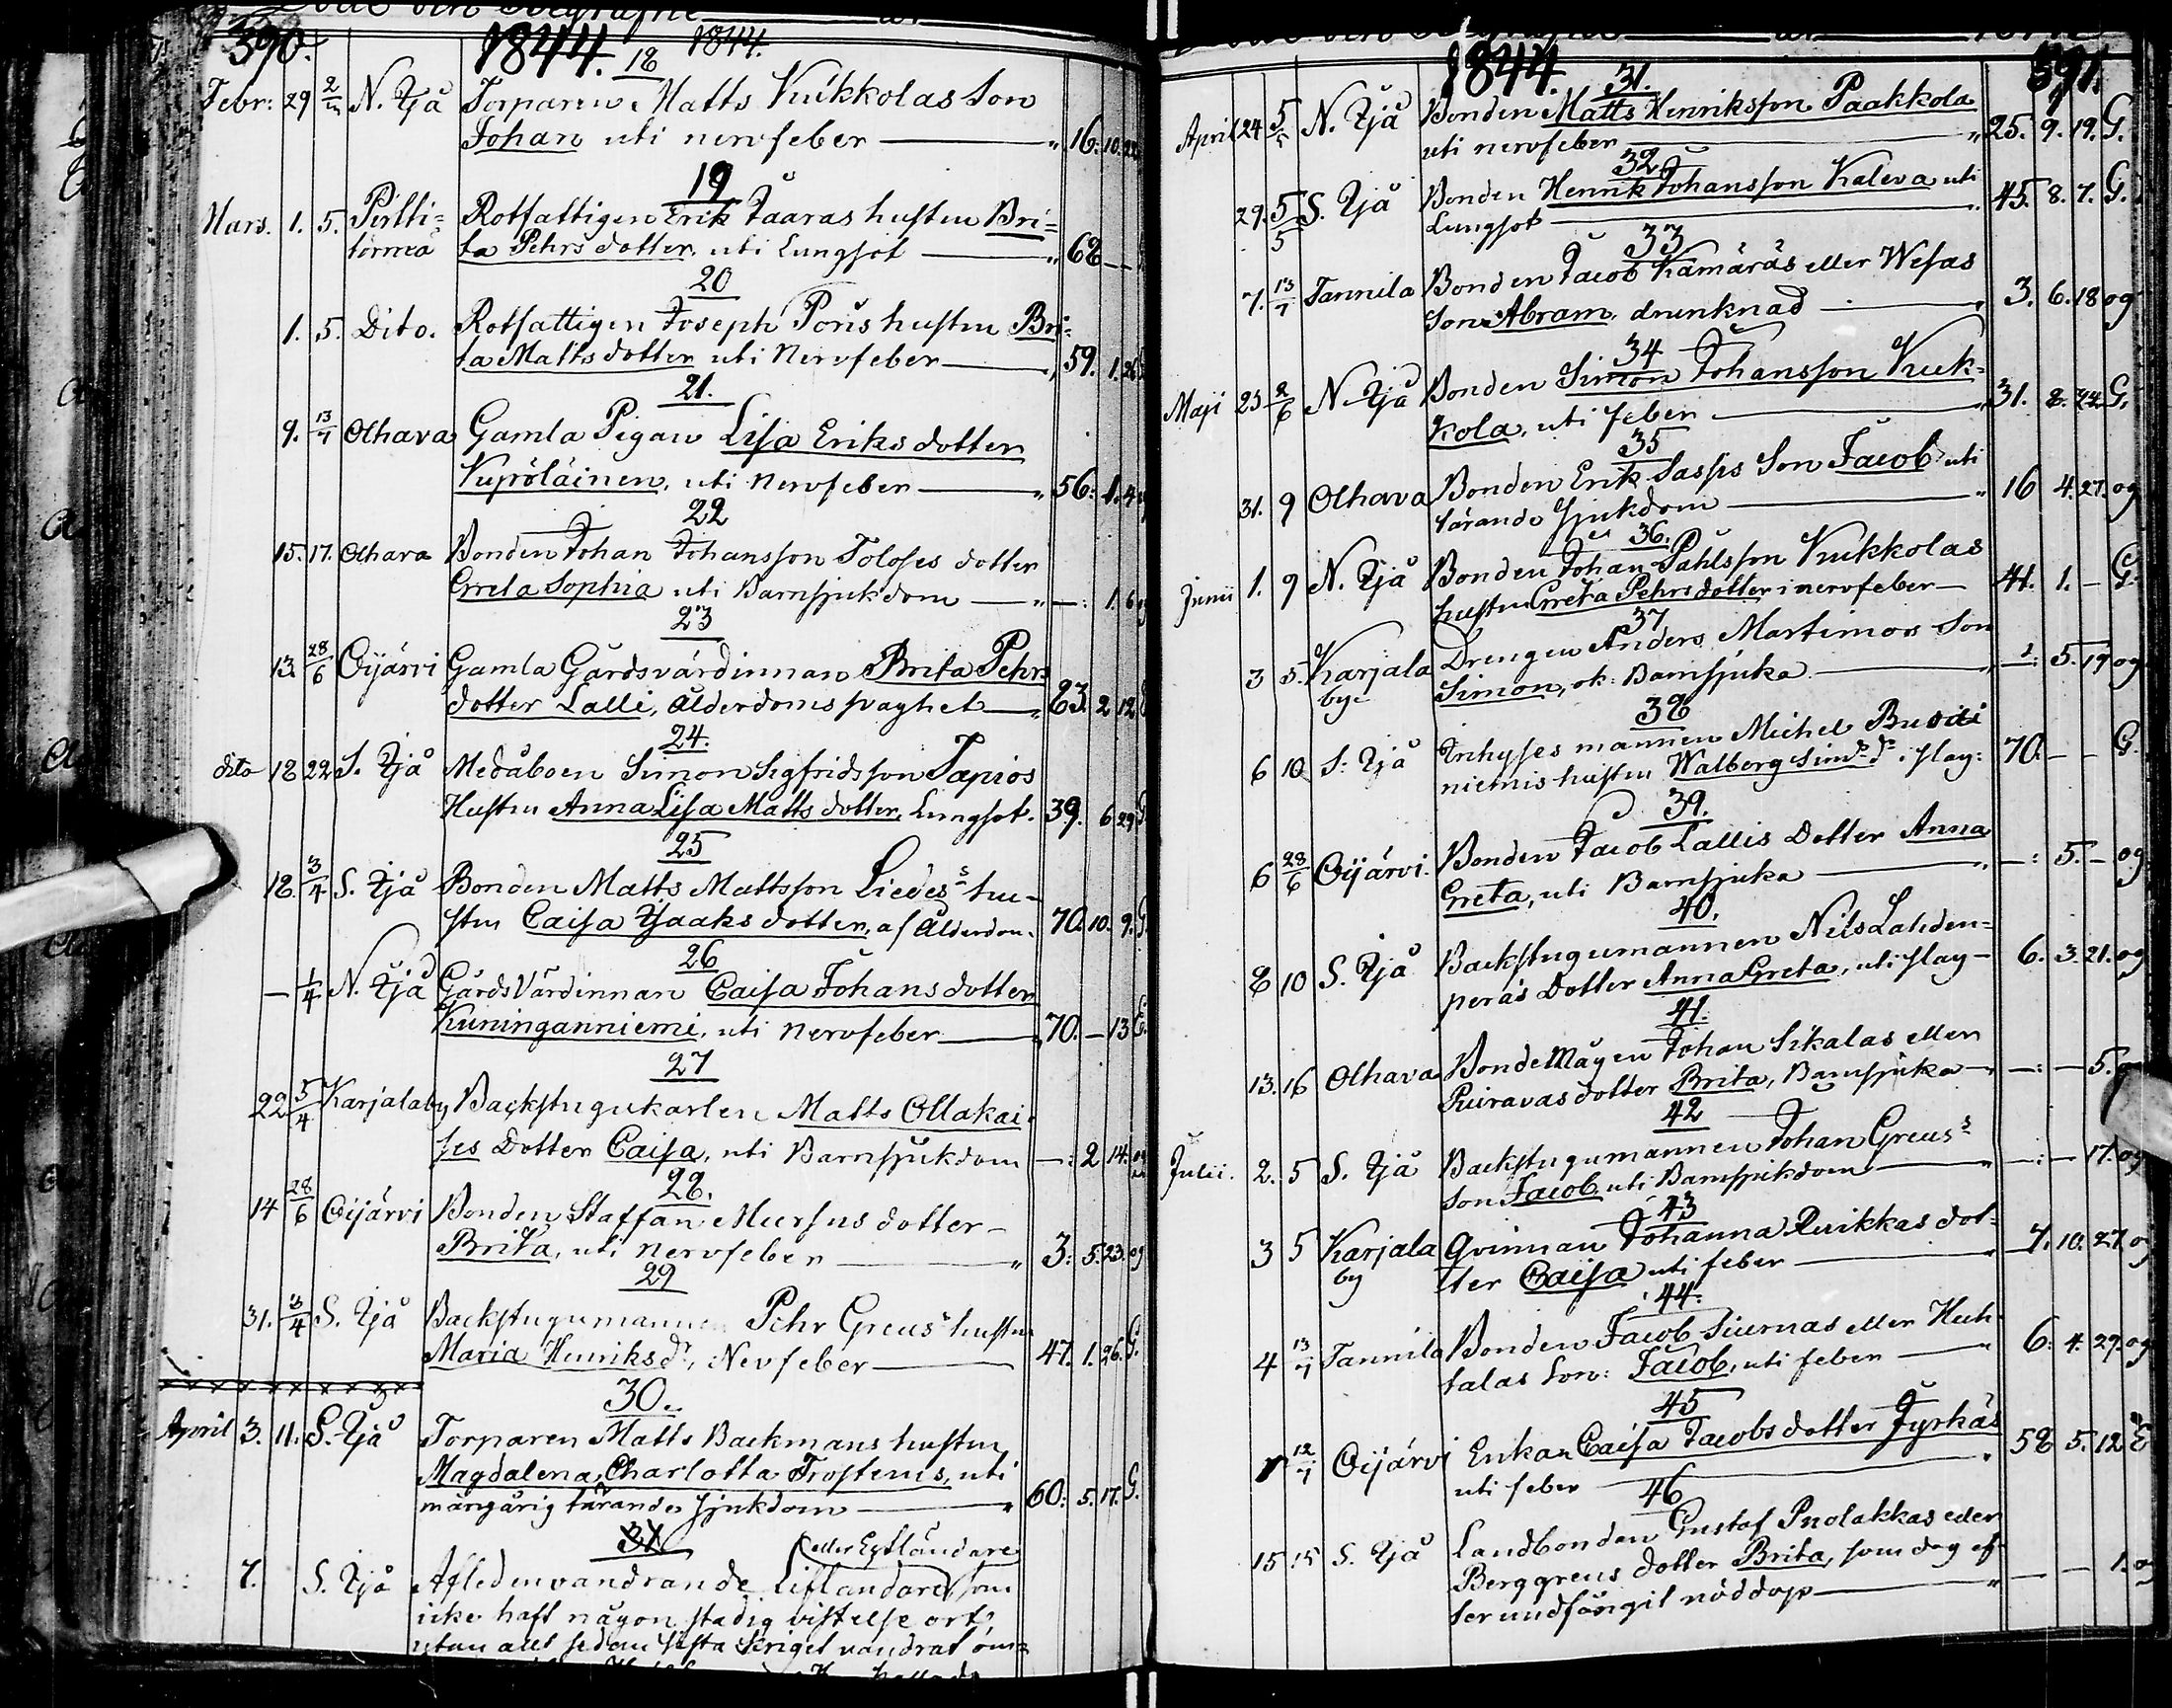 390.
1844. 1844.
18
Febr: 29 2/5 N. Ijå Torparen Matts Kukkolas Son
Johan uti nervfeber 16. 10. 22
19
Mars. 1. 5. Pirtti=
torneå
Rotfattigen Erik Jaaras hustru Bri=
ta Pehrsdotter uti Lungsot 68
20
1. 5. Dito. Rotfattigen Joseph Poris hustru Bri=
ta Mattsdotter uti Nervfeber 59. 1. 26
21.
9. 13/7 Olhava Gamla Pigan Lisa Eriksdotter
Kupsoläinen, uti nervfeber 56: 1. 4
22
15. 17. Olhava Bonden Johan Johansson Toloses dotter
Greta Sophia uti Barnsjukdom —: 1. 6
23
13. 28/6 Oijärvi Gamla Gårdsvärdinnan Brita Pehrs
dotter Lalli, Ålderdomsvaghet 83. 2 12
24.
dito 18 22 S. Ijå Medåboen Simon Sigfridsson Tapios
Hustru Anna Lisa Mattsdotter, Lungsot. 39. 6 29 G
25
18. 3/4 S. Ijå Bonden Matts Mattsson Liedes hu-
stru Caisa Isaaksdotter, af Ålderdom. 70. 10. 9. G.
26
— 1/4 N. Ijå Gårdsvärdinnan Caisa Johansdotter
Kuninganniemi, uti nervfeber 70. — 13 E.
27
22 5/4 Karjalaby Backstugukarlen Matts Ollakai-
ses Dotter Caisa, uti Barnsjukdom —: 2 14. og
28.
14 28/6 Oijärvi Bonden Staffan Meersus dotter
Brita, uti nervfeber 3: 5. 23. og
29
31. 3/4 S. Ijå Backstugumannen Pehr Greus hustru
Maria Henriksdr, Nervfeber 47. 1. 26. G.
30.
April 3. 11. S. Ijå Torparen Matts Backmans hustru
Magdalena Charlotta Frostenis, uti
mångårig tärande sjukdom 60: 5. 17. G.
31
(eller Estländare)
7. S. Ijå Afledenvandrande Lifländare som
icke haft någon stadig vistelse ort,
utan allt sedan sista Kriget vandrat om=
1844. 391.
31.
April 24 5/5 N. Ijå Bonden Matts Henriksson Paakkola
uti nervfeber 25. 9. 19. G.
32
29. 5/5 S. Ijå Bonden Henrik Johansson Kaleva uti
Lungsot 45. 8. 7. G.
33
7. 13/7 Tannila Bonden Jacob Kämäräs eller Wesas
Son Abram drunknad 3. 6. 18 og
34
Maji 25 2/6 N. Ijå Bonden Simon Johansson Kuk=
kola, uti feber 31. 8. 22 G.
35
31. 9 Olhava Bonden Erik Sassis Son Jacob uti
tärande sjukdom 16 4. 27. og
36.
Junii 1. 9 N. Ijå Bonden Johan Påhlsson Kukkolas
hustru Greta Pehrsdotter i nervfeber 41. 1. — G.
37
3 5. Karjala
by
Drengen Anders Martimos Son
Simon, ok: Barnsjuka —: 5. 19 og
38
6 10 S. Ijå Inhyses mannen Michel Budді
niemis hustru Walborg Simsdr i slag: 70. — — G.
39.
6 28/6 Oijärvi. Bonden Jacob Lallis Dotter Anna
Greta, uti Barnsjuka —: 5. — og
40.
8 10 S. Ijå Backstugumannen Nils Lahden=
peräs Dotter Anna Greta, uti slag 6. 3. 21. og
41.
13. 16 Olhava Bondemågen Johan Sikalas eller
Puiravas dotter Brita, Barnsjuka —: — 5.
42
Julii. 2. 5 S. Ijå Backstugumannen Johan Greus
Son Jacob uti Barnsjukdom —: — 17. og
43
3 5 Karjala
by
Qvinnan Johanna Ruikkas dot=
ter Caisa uti feber 7. 10. 27. og
44.
4 13/7 Tannila Bonden Jacob Siurnas eller Huh
talas Son: Jacob, uti feber 6: 4. 29. og
45
7 12/7 Oijärvi Enkan Caisa Jacobsdotter Jyrkäs
uti feber 58 5. 12 E
46
15 15 S. Ijå Landbonden Gustaf Puolakkas eller
Berggrens dotter Brita, som dog ef=
ter undfångit nöddop — — 1. og